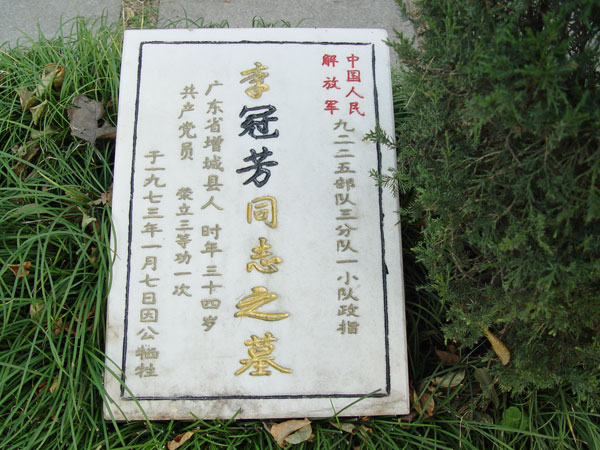 中国人民
解放军
九二二五部队三分队一小队政指
李冠芳同志之墓
广东省增城县人 时年三十四岁
共产党员 荣立三等功一次
于一九七三年一月七日因公牺牲